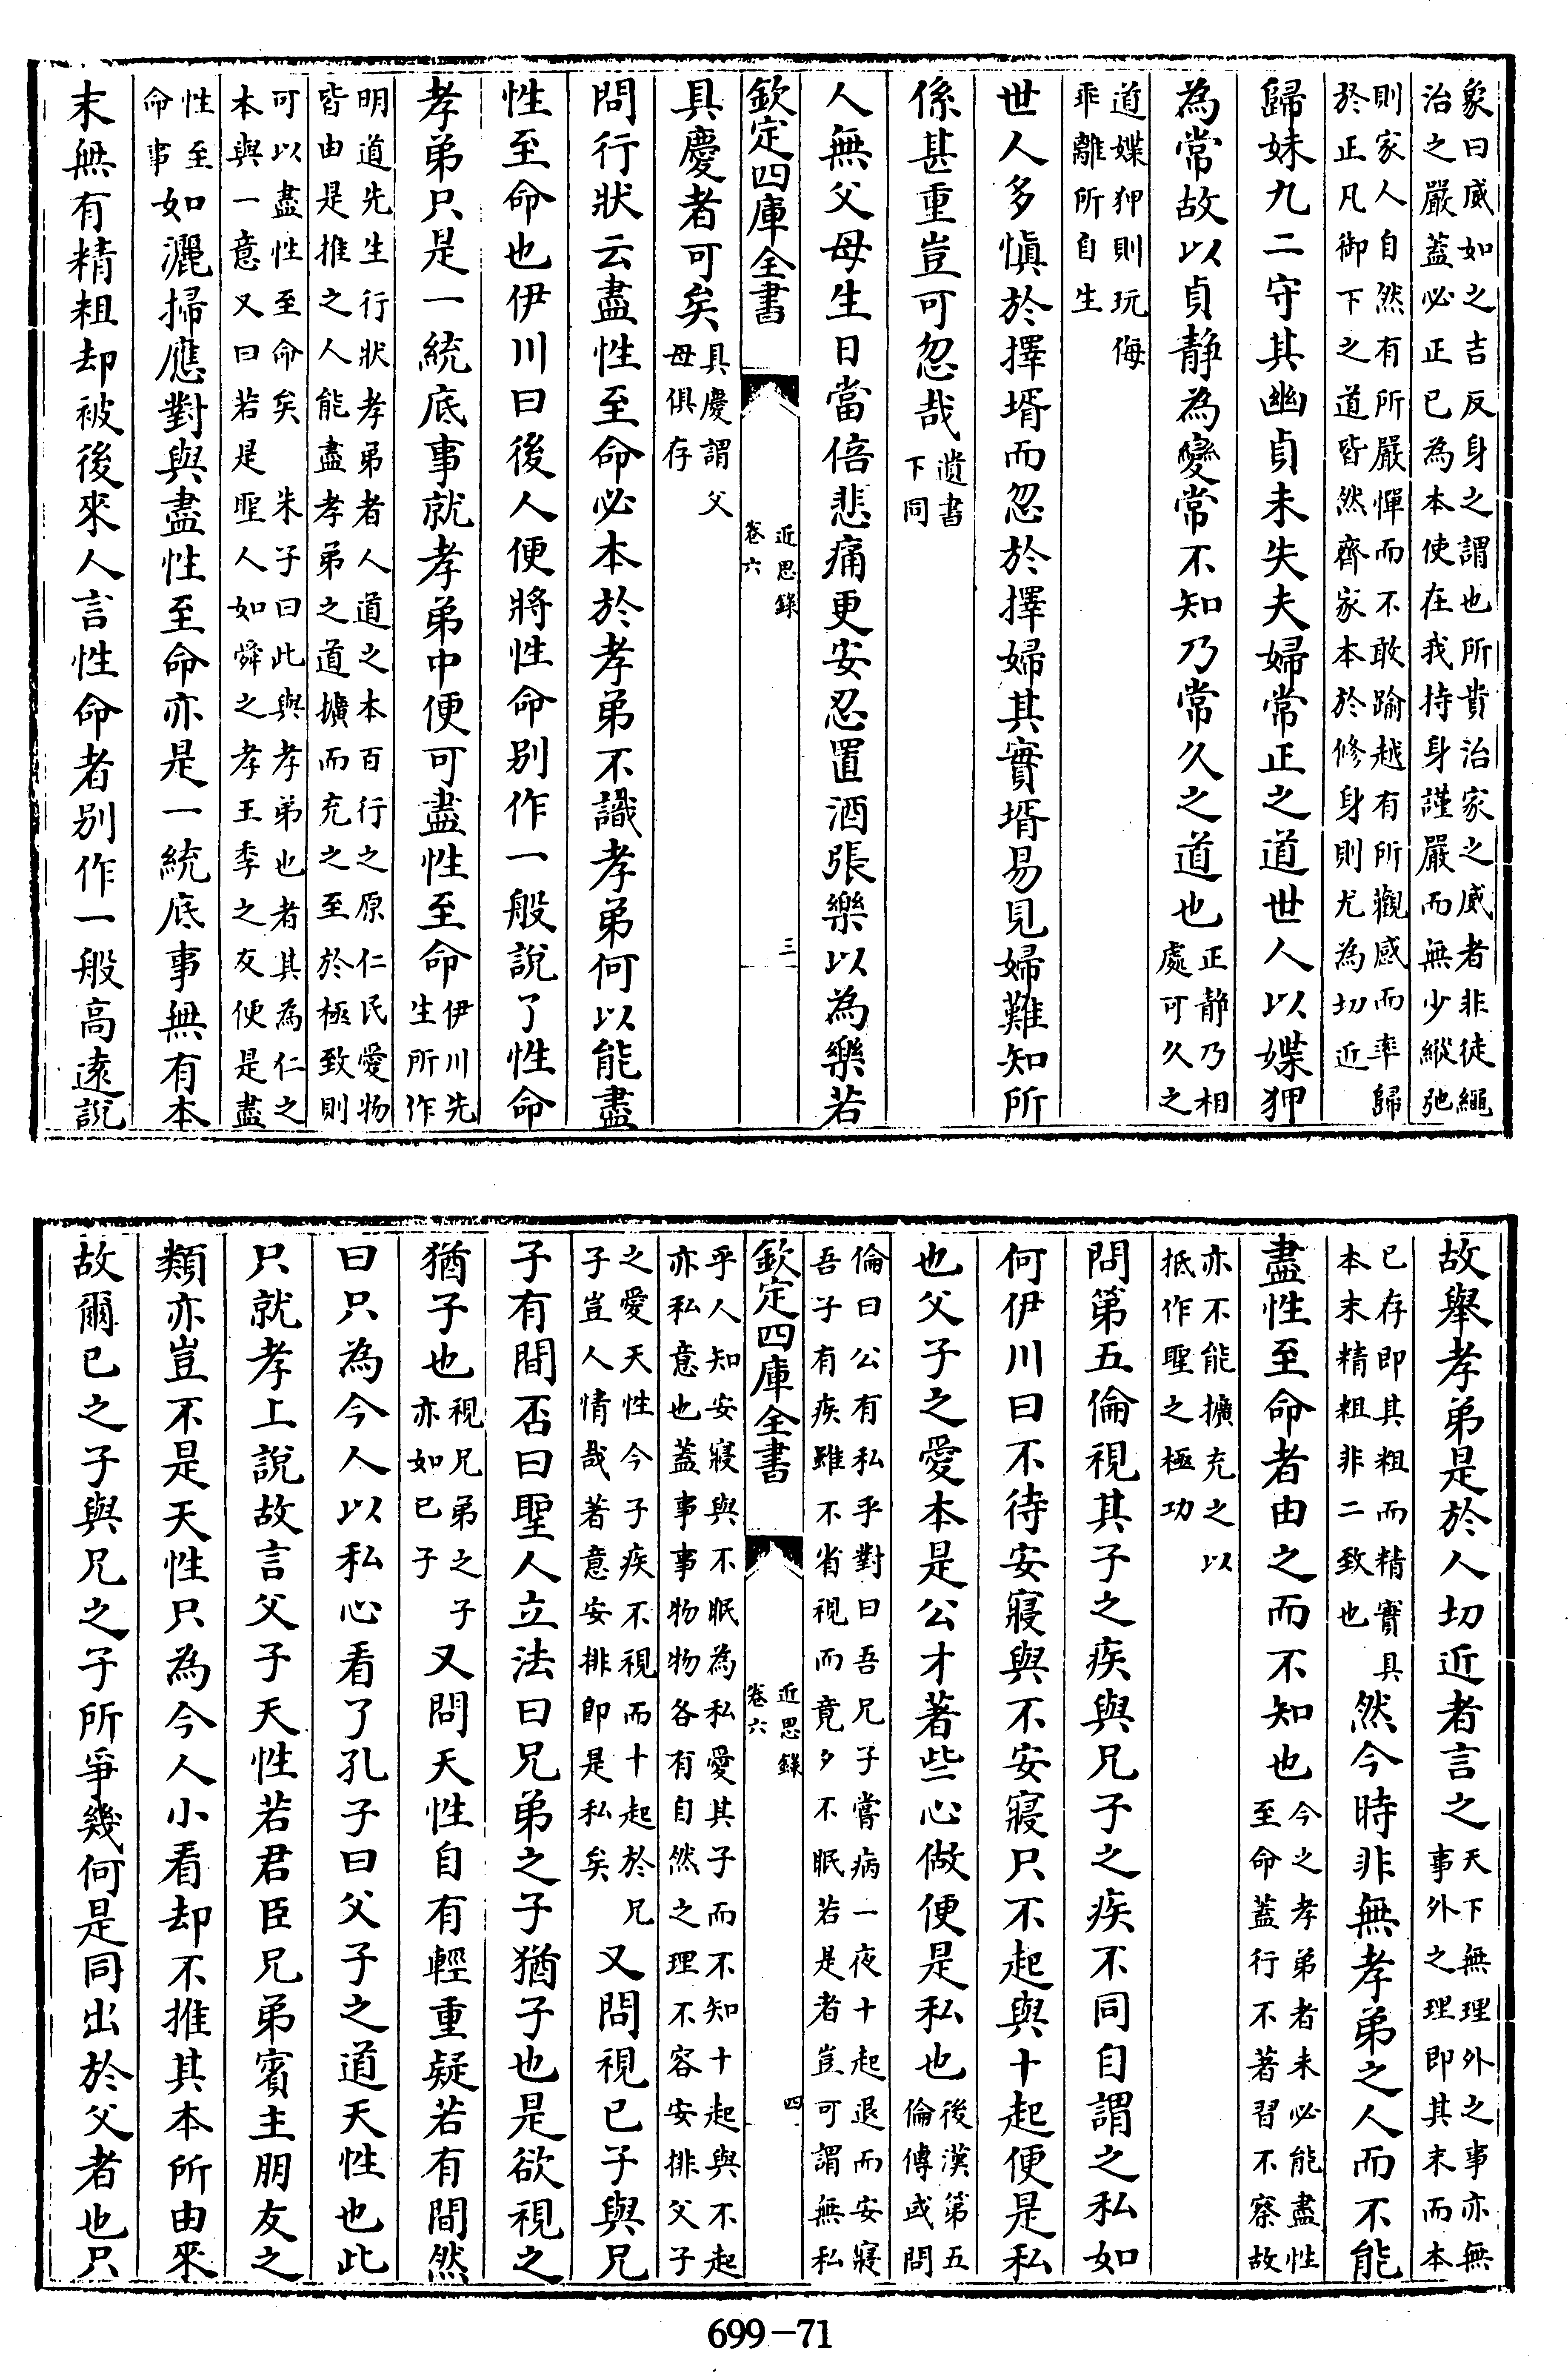 象曰威如之吉反身之謂也所貴治家之威者非徒繩
治之嚴蓋必正己為本使在我持身謹嚴而無少縱弛
則家人自然有所嚴憚而不敢踰越有所觀感而率歸
於正凡御下之道皆然齊家本於修身則尤為切近
歸妹九二守其幽貞未失夫婦常正之道世人以媟狎
為常故以貞靜為變常不知乃常久之道也
正靜乃相
處可久之
道媟狎則玩侮
乖離所自生
世人多慎於擇壻而忽於擇婦其實壻易見婦難知所
係甚重豈可忽哉
遺書
下同
人無父母生日當倍悲痛更安忍置酒張樂以為樂若
欽定四庫全書
近思錄
卷六
三
具慶者可矣
具慶謂父
母俱存
問行狀云盡性至命必本於孝弟不識孝弟何以能盡
性至命也伊川曰後人便將性命別作一般說了性命
孝弟只是一統底事就孝弟中便可盡性至命
伊川先
生所作
明道先生行狀孝弟者人道之本百行之原仁民愛物
皆由是推之人能盡孝弟之道擴而充之至於極致則
可以盡性至命矣 朱子曰此與孝弟也者其為仁之
本與一意又曰若是聖人如舜之孝王季之友便是盡
性至
命事
如灑掃應對與盡性至命亦是一統底事無有本
末無有精粗却被後來人言性命者別作一般高遠說
故舉孝弟是於人切近者言之
天下無理外之事亦無
事外之理即其末而本
已存即其粗而精實具
本末精粗非二致也
然今時非無孝弟之人而不能
盡性至命者由之而不知也
今之孝弟者未必能盡性
至命蓋行不著習不察故
亦不能擴充之以
抵作聖之極功
問第五倫視其子之疾與兄子之疾不同自謂之私如
何伊川曰不待安寢與不安寢只不起與十起便是私
也父子之愛本是公才著些心做便是私也
後漢第五
倫傳或問
倫曰公有私乎對曰吾兄子嘗病一夜十起退而安寢
吾子有疾雖不省視而竟夕不眠若是者豈可謂無私
欽定四庫全書
近思錄
卷六
四
乎人知安寢與不眠為私愛其子而不知十起與不起
亦私意也蓋事事物物各有自然之理不容安排父子
之愛天性今子疾不視而十起於兄
子豈人情哉著意安排即是私矣
又問視己子與兄
子有間否曰聖人立法曰兄弟之子猶子也是欲視之
猶子也
視兄弟之子
亦如己子
又問天性自有輕重疑若有間然
曰只為今人以私心看了孔子曰父子之道天性也此
只就孝上說故言父子天性若君臣兄弟賓主朋友之
類亦豈不是天性只為今人小看却不推其本所由來
故爾己之子與兄之子所爭幾何是同出於父者也只
699-71